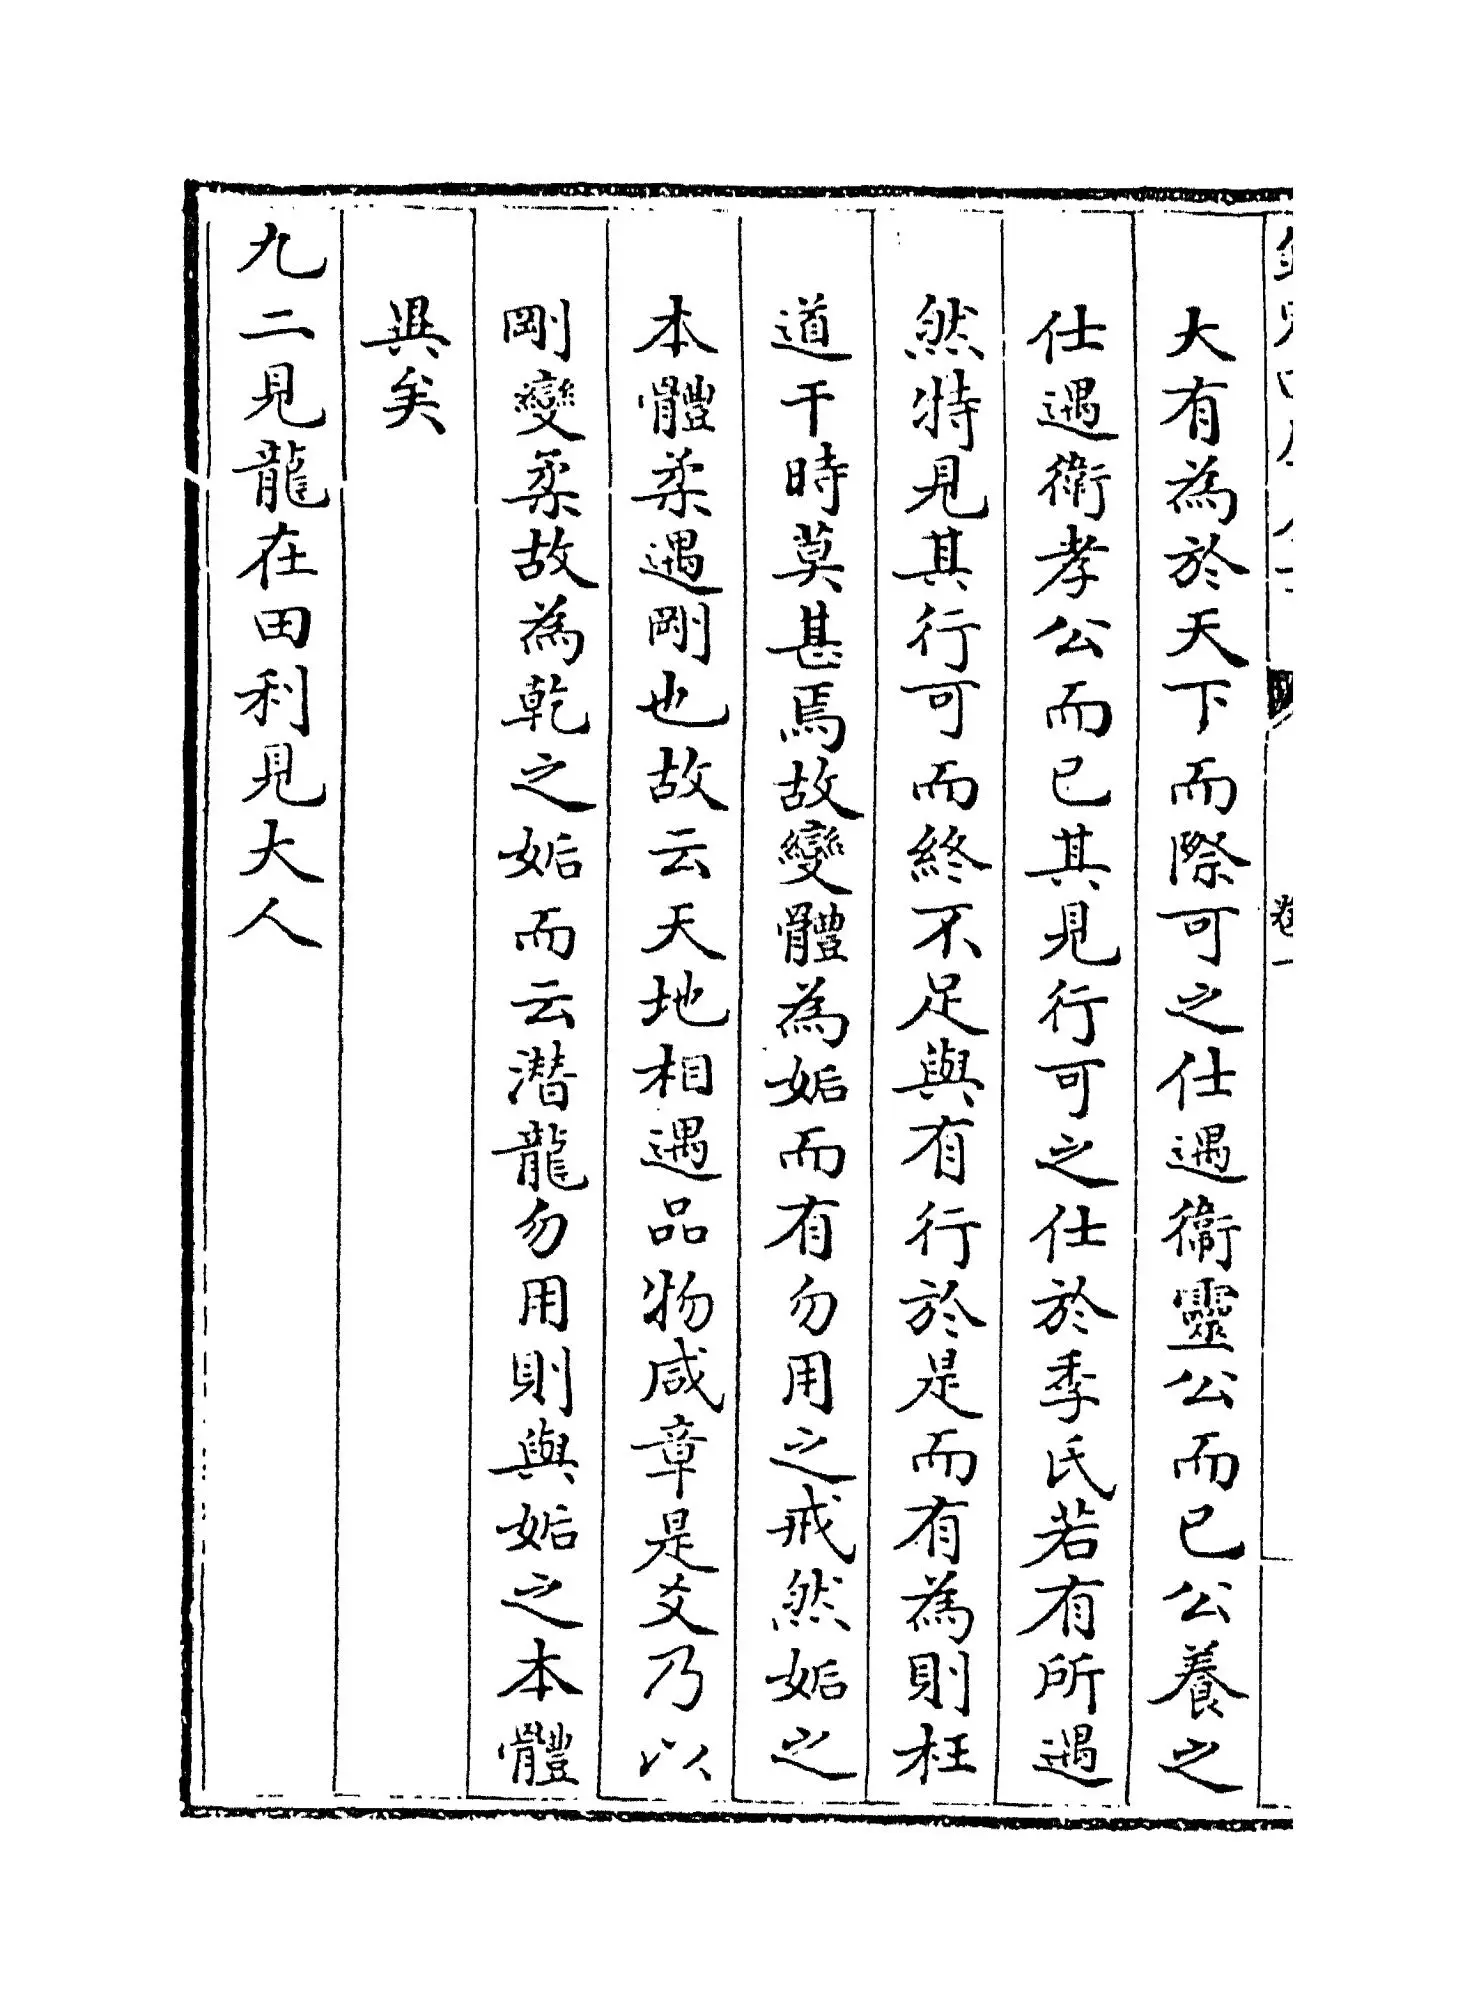 大有為於天下而際可之仕遇衞靈公而已公養之
仕遇衛孝公而已其見行可之仕於季氏若有所遇
然特見其行可而終不足與有行於是而有為則枉
道干時莫甚焉故變體為姤而有勿用之戒然姤之
本體柔遇剛也故云天地相遇品物咸章是爻乃以
剛變柔故為乾之姤而云潛龍勿用則與姤之本體
異矣
九二見龍在田利見大人